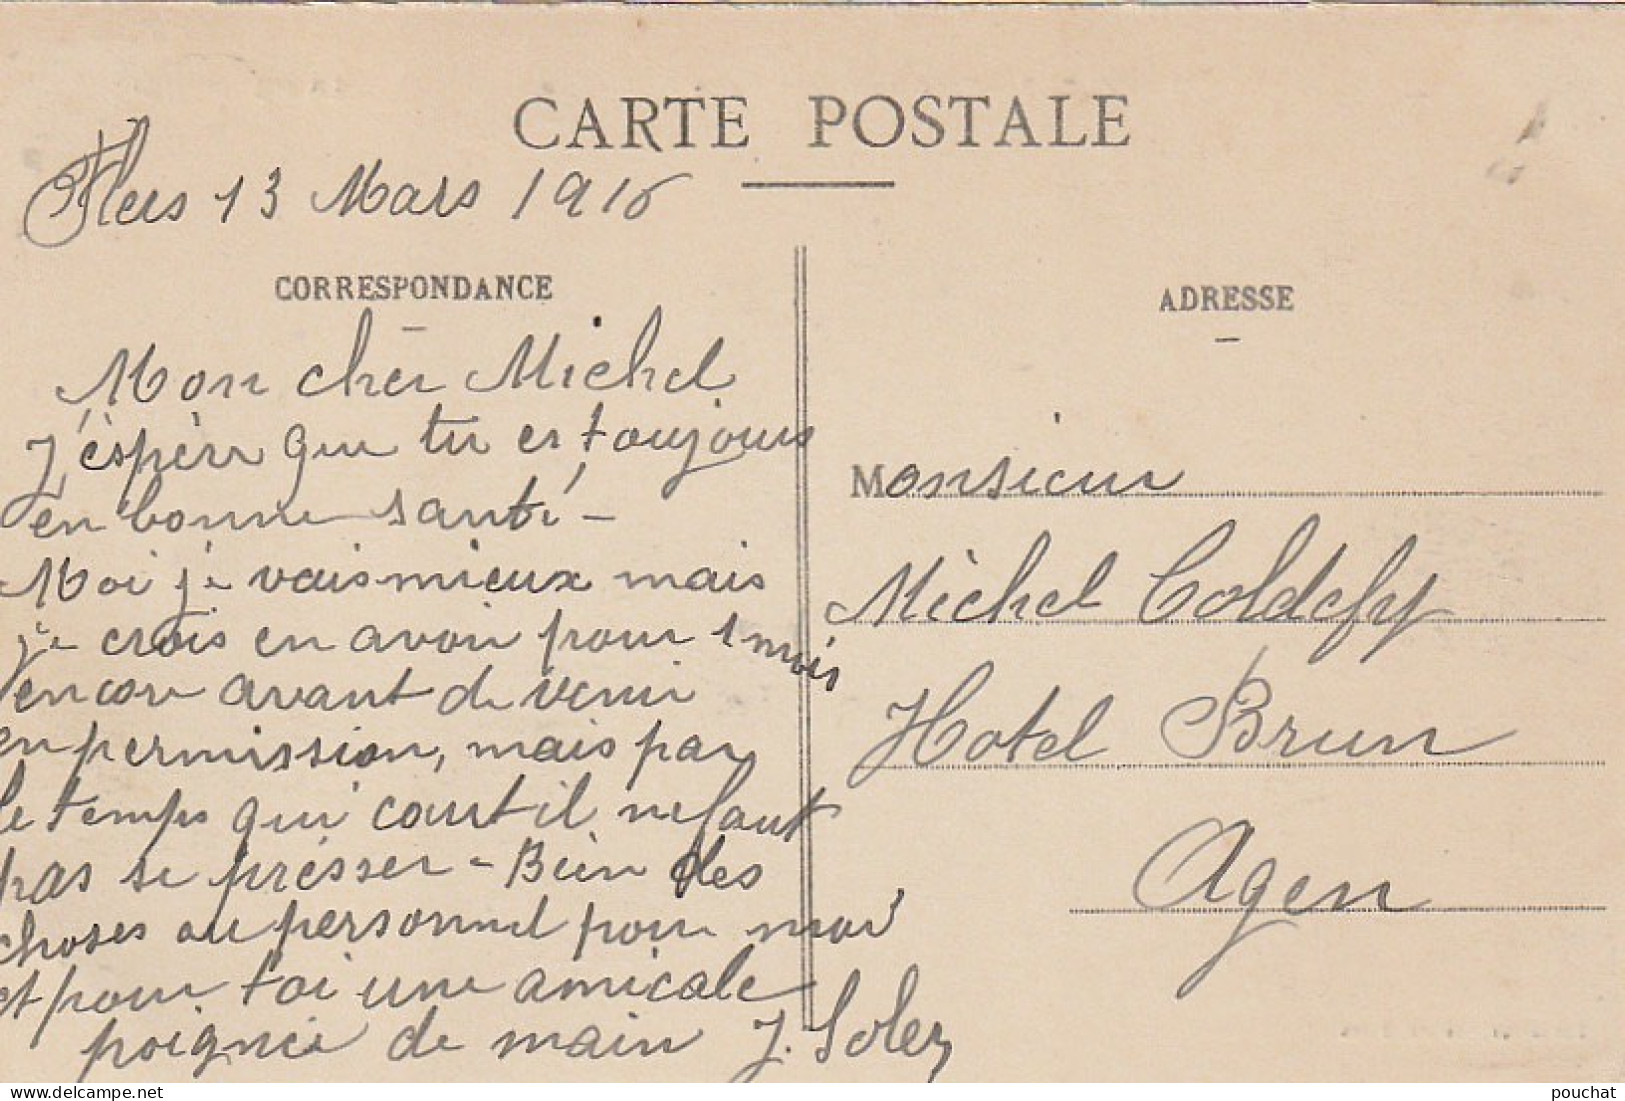 CARTE POSTALE
Flers 13 Mars 1916
CORRESPONDANCE
Mon cher Michel
J'éspère que tu es toujours
en bonne santé -
Moi je vais mieux mais
je crois en avoir pour 1 mois
encore avant de venir
en permission, mais par
le temps qui court il ne faut
pas se présser - Bien des
choses au personnel pour moi
et pour toi une amicale
poignée de main J. Soler
ADRESSE
Monsieur
Michel Coldefy
Hotel Brun
Agen
pouchat